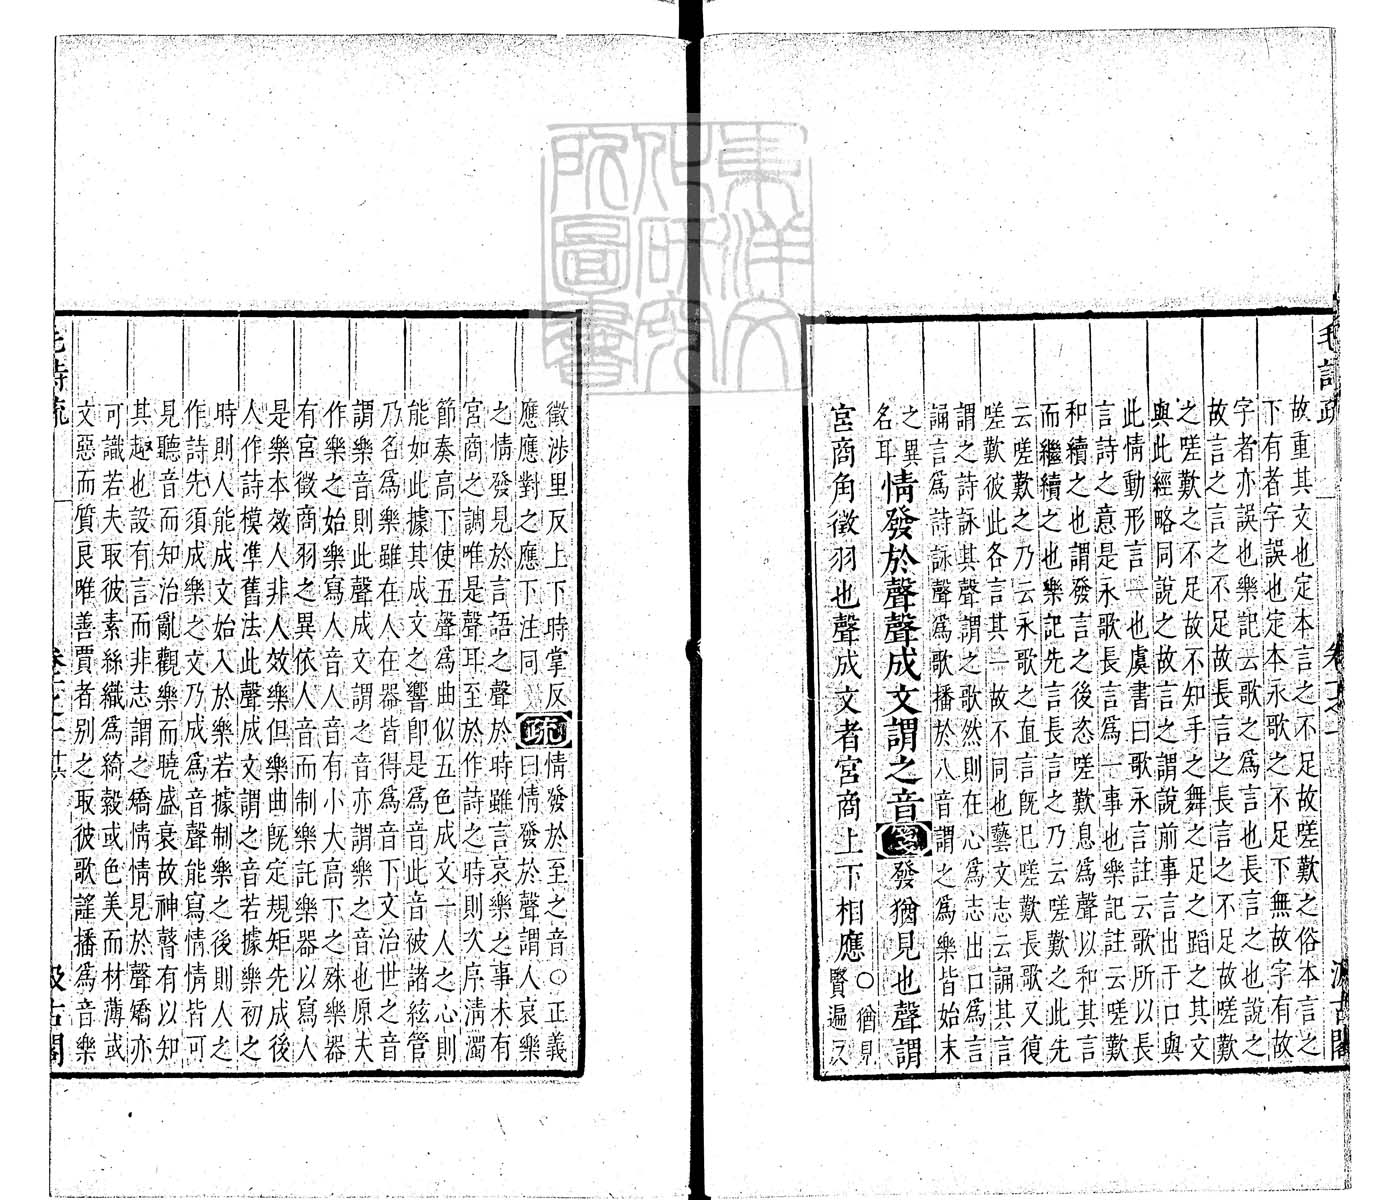 故重其文也定本言之不足故嗟歎之俗本言之
下有者字誤也定本永歌之不足下無故字有故
字者亦誤也樂記云歌之爲言也長言之也說之
故言之言之不足故長言之長言之不足故嗟歎
之嗟歎之不足故不知手之舞之足之蹈之其文
與此經略同說之故言之謂說前事言出于口與
此情動形言一也虞書曰歌永言註云歌所以長
言詩之意是永歌長言爲一事也樂記註云嗟歎
和續之也謂發言之後恣嗟歎息爲聲以和其言
而繼續之也樂記先言長言之乃云嗟歎之此先
云嗟歎之乃云永歌之直言既已嗟歎長歌又復
嗟歎彼此各言其一故不同也藝文志云誦其言
謂之詩詠其聲謂之歌然則在心爲志出口爲言
誦言爲詩詠聲爲歌播於八音謂之爲樂皆始末
之異
名耳
情發於聲聲成文謂之音
發猶見也聲謂
宮商角徵羽也聲成文者宮商上下相應
○猶見
賢遍反
徵涉里反上下時掌反
應應對之應下注同
疏
情發於至之音○正義
曰情發於聲謂人哀樂
之情發見於言語之聲於時雖言哀樂之事未有
宮商之調唯是聲耳至於作詩之時則次序清濁
節奏高下使五聲爲曲似五色成文一人之心則
能如此據其成文之響卽是爲音此音被諸絃管
乃名爲樂雖在人在器皆得爲音下文治世之音
謂樂音則此聲成文謂之音亦謂樂之音也原夫
作樂之始樂寫人音人音有小大高下之殊樂器
有宮徵商羽之異依人音而制樂託樂器以寫人
是樂本效人非人效樂但樂曲既定規矩先成後
人作詩模準舊法此聲成文謂之音若據樂初之
時則人能成文始入於樂若據制樂之後則人之
作詩先須成樂之文乃成爲音聲能寫情情皆可
見聽音而知治亂觀樂而曉盛衰故神瞽有以知
其趣也設有言而非志謂之矯情情見於聲矯亦
可識若夫取彼素絲織爲綺縠或色美而材薄或
文惡而質良唯善賈者别之取彼歌謠播爲音樂